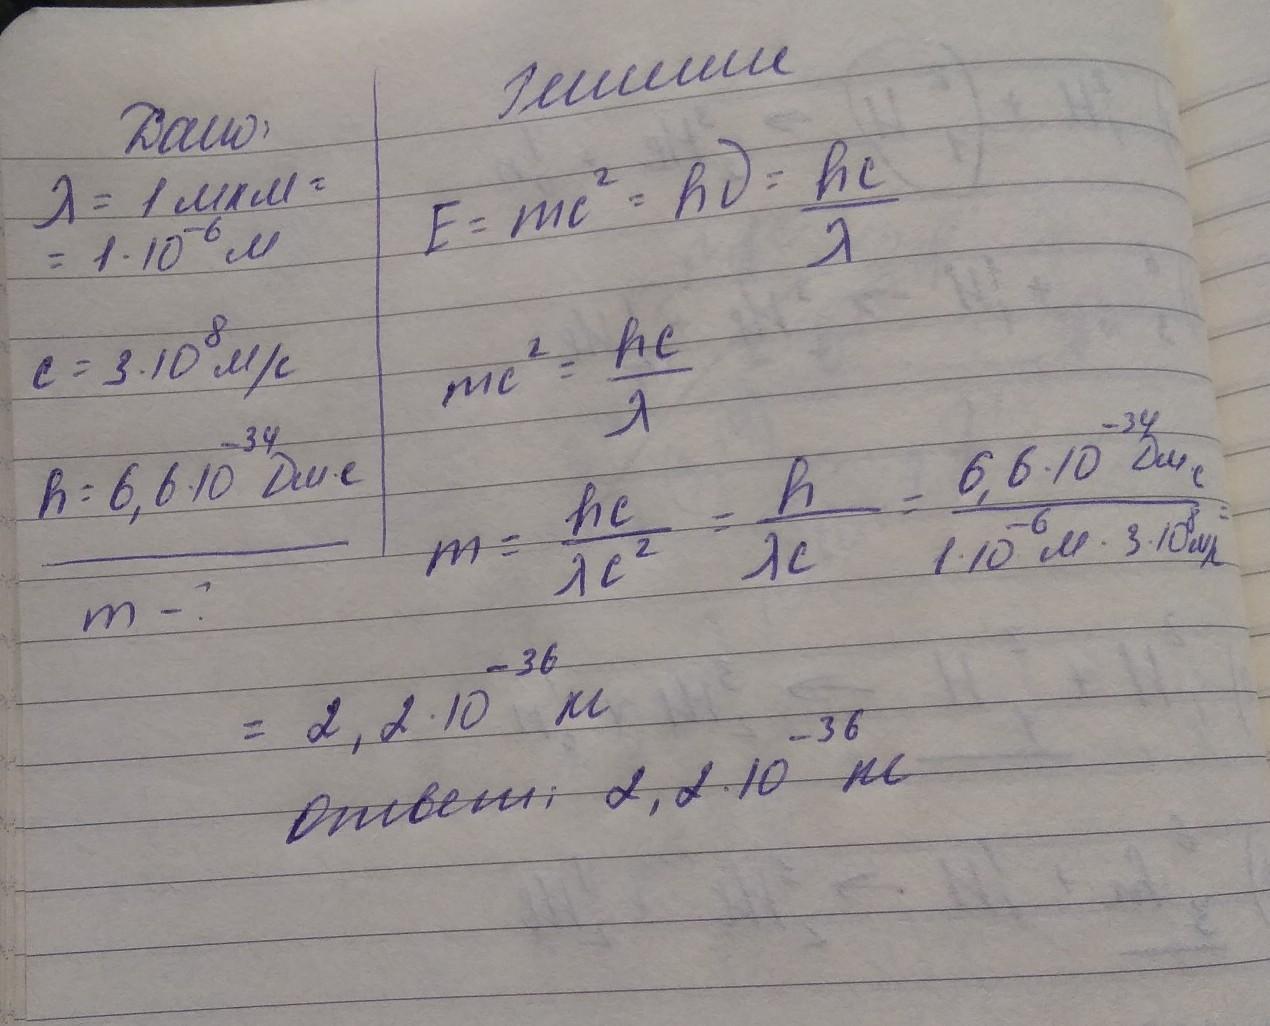 Дано:
λ = 1 мкм =
= 1·10⁻⁶ м
c = 3·10⁸ м/с
h = 6,6·10⁻³⁴ Дж·с
m - ?
Решение
E = mc² = hν = hc/λ
mc² = hc/λ
m = hc/λc² = h/λc = 6,6·10⁻³⁴ Дж·с / 1·10⁻⁶ м · 3·10⁸ м/с =
= 2,2·10⁻³⁶ кг
Ответ: 2,2·10⁻³⁶ кг